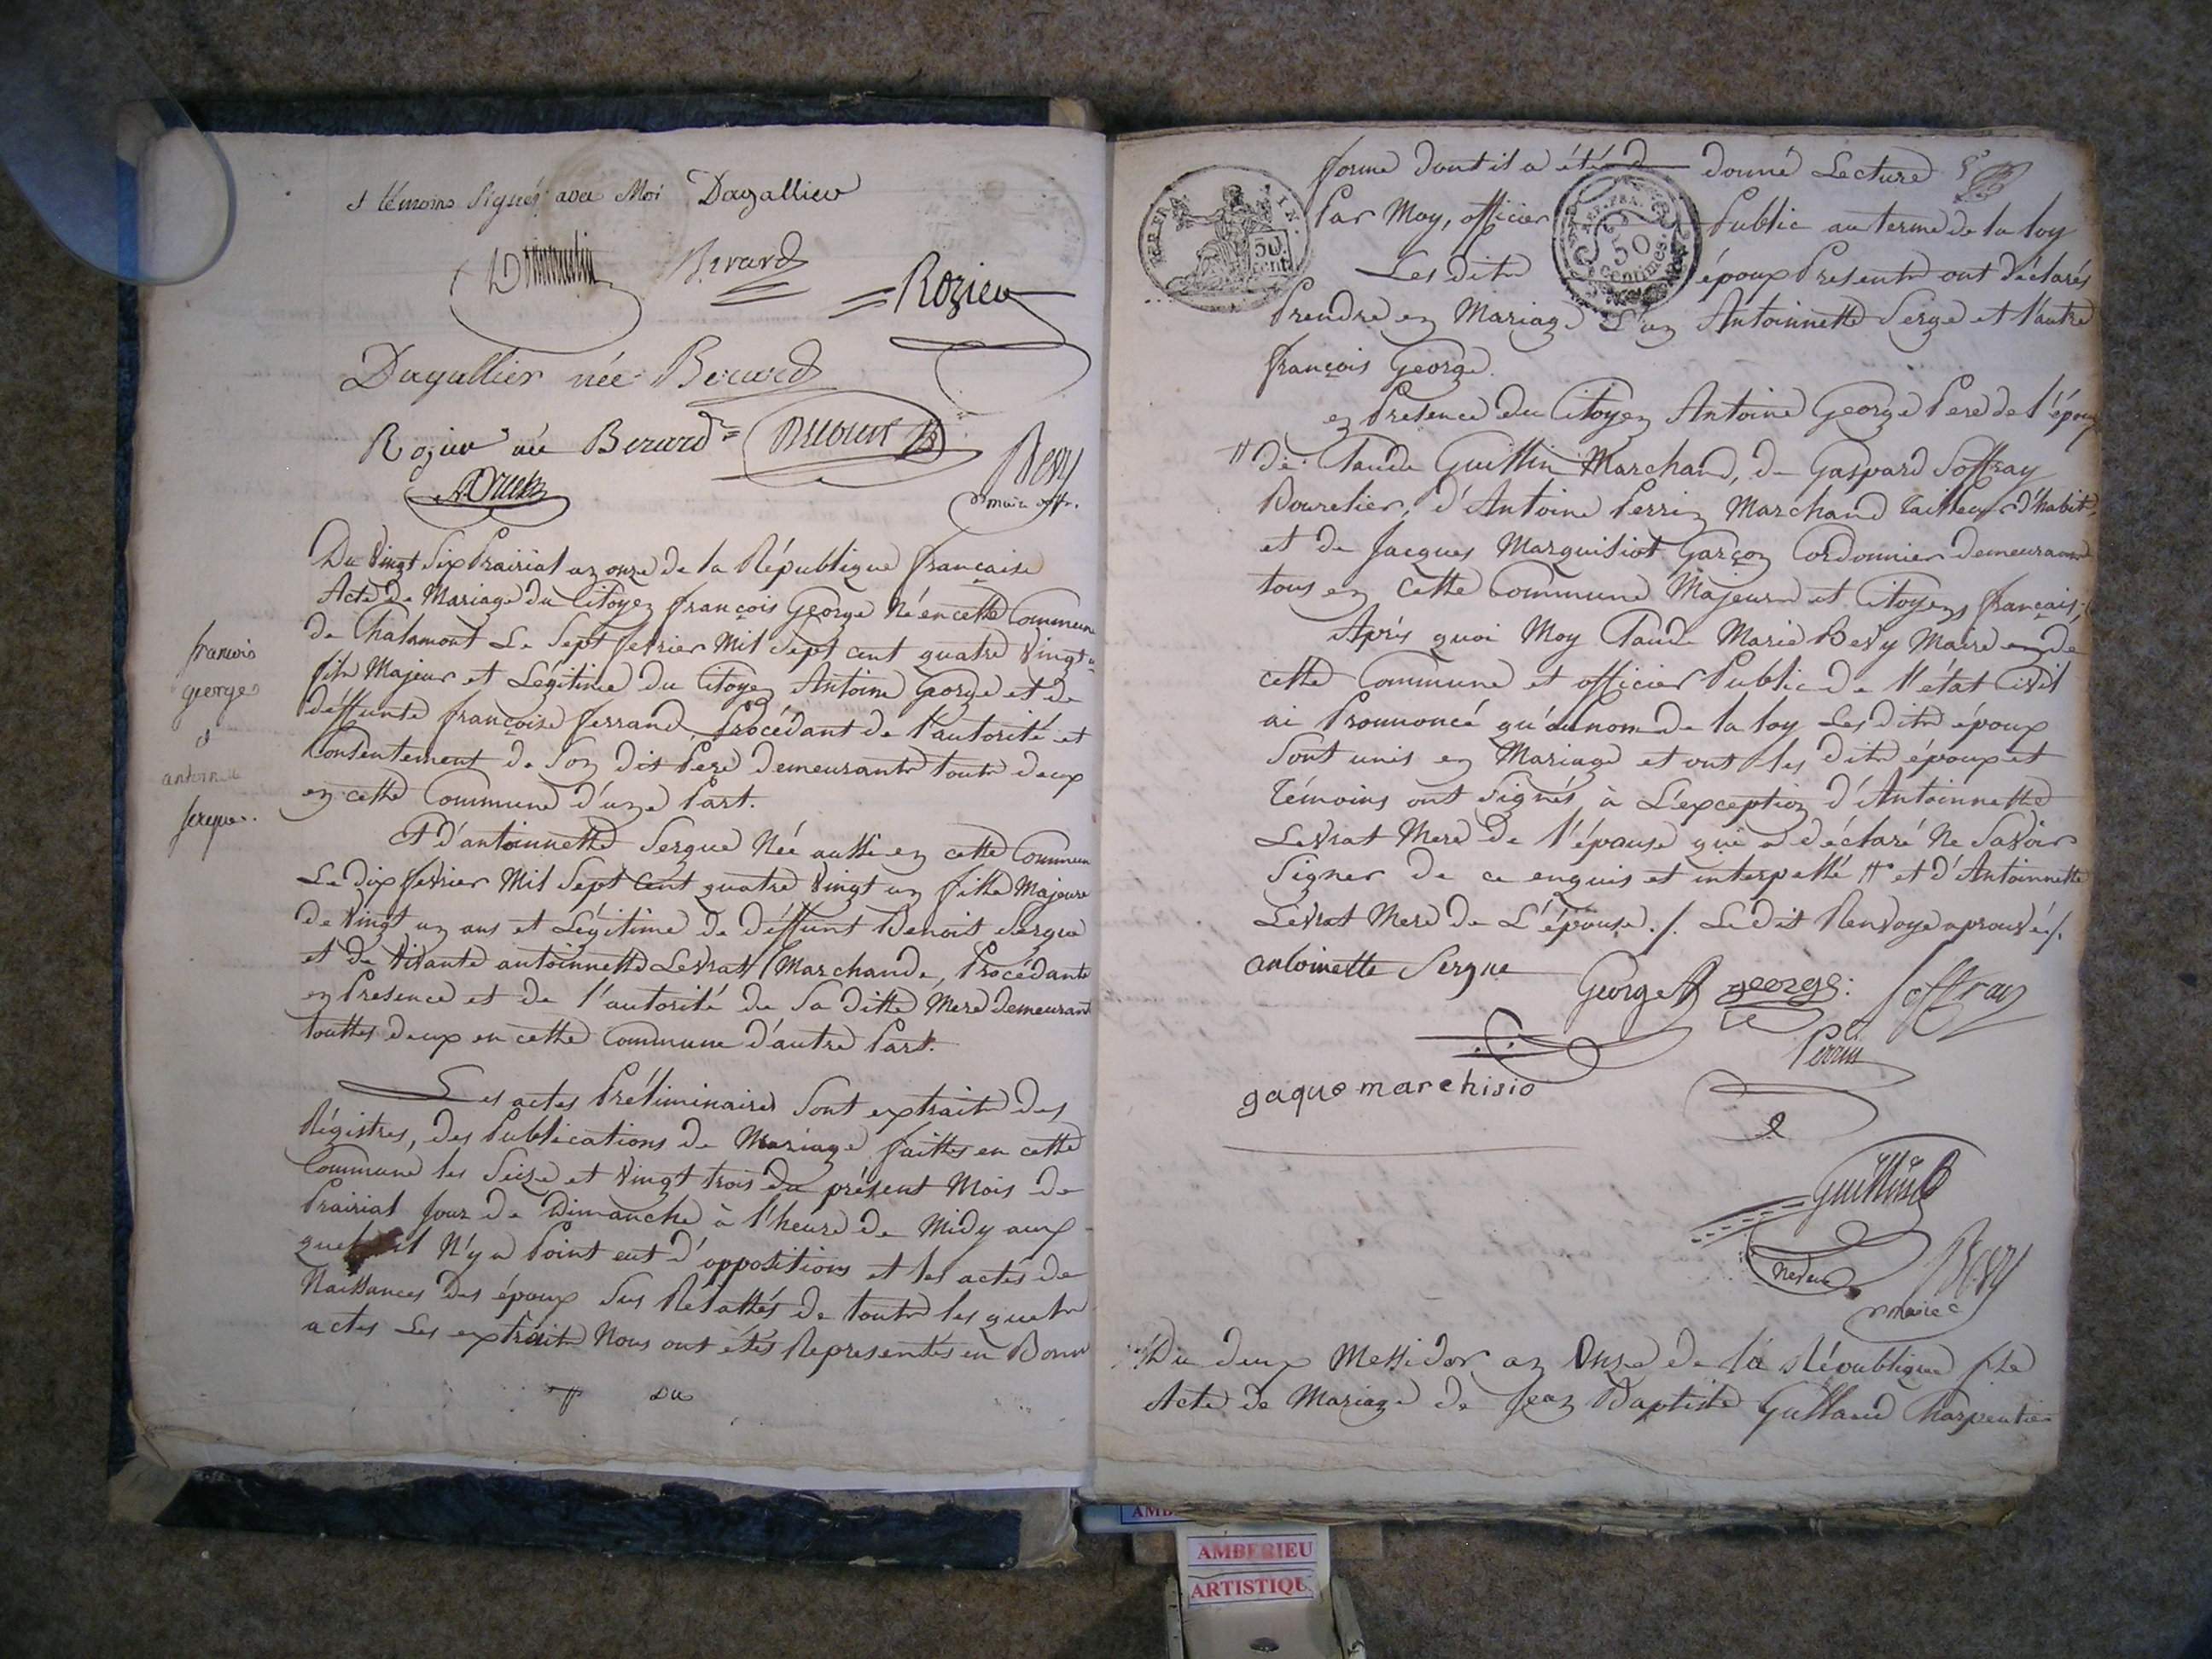 et témoins Signés avec Moi Dagallier
Berard
Rozier
Dagallier née Berard
Rozier née Berard
Bevy
maire
Du Vingt Six Prairial an onze de la République française
Acte de Mariage du Citoyen françois George Né en cette Commune
de Chalamont Le Sept fevrier Mil Sept cent quatre Vingt un
fils Majeur et Légitime du Citoyen Antoine George et de
déffunte françoise ferrand, Procédant de l'autorité et
Consentement de Son dit Pere demeurants touts deux
en cette Commune d'une Part.
francois
george
et
antoinette
sergue.
Et d'antoinette Sergue Née aussi en cette Commune
Le dix fevrier Mil Sept Cent quatre Vingt un fille Majeure
de Vingt un ans et Légitime de déffunt Benoit Sergue
et de Vivante antoinnette Levrat Marchande, Procédante
en Presence et de l'autorité de Sa ditte Mere demeurant
touttes deux en cette Commune d'autre Part.
Les actes Préliminaires Sont extraits des
Régistres, des Publications de Mariage faittes en cette
Commune les Seize et Vingt trois du présent Mois de
Prairial Jour de Dimanche à l'heure de Midy aux
quels il N'y a Point eut d'oppositions et les actes de
Naissances des époux Sus Relattés de touts les quels
actes Les extraits Nous ont étés Représentés en Bonne
forme dont il a été donné Lecture
Par Moy, officier Public au terme de la loy
Les dits époux Presents ont déclarés
Prendre en Mariage L'un Antoinnette Serge et l'autre
françois George.
en Presence du Citoyen Antoine George Pere de l'époux
de Claude Guillin Marchand, de Gaspard Soffray
Bourelier, d'Antoine Perrin Marchand tailleur d'habits
et de Jacques Marquisiot Garçon Cordonnier demeurants
tous en Cette Commune Majeurs et Citoyens français,
Après quoi Moy Claude Marie Bevy Maire de
cette Commune et officier Public de l'état Civil
ai Prononcé qu'au nom de la loy Les dits époux
Sont unis en Mariage et ont les dits époux et
témoins ont Signés, à L'exception d'Antoinnette
Levrat Mere de l'épouse qui a déclaré Ne Savoir
Signer de ce enquis et interpellé # et d'Antoinnette
Levrat Mere de L'épouse ./. Le dit Renvoye aprouvé ./.
antoinette Sergue
George
george
Soffray
Perrin
gaque marchisio
Guillin
Bevy
maire
Du deux Messidor an Onze de la République fse
Acte de Mariage de Jean Baptiste Gullaud Charpentier
50
REP. FRA.
50
centimes
AMBERIEU
ARTISTIQU